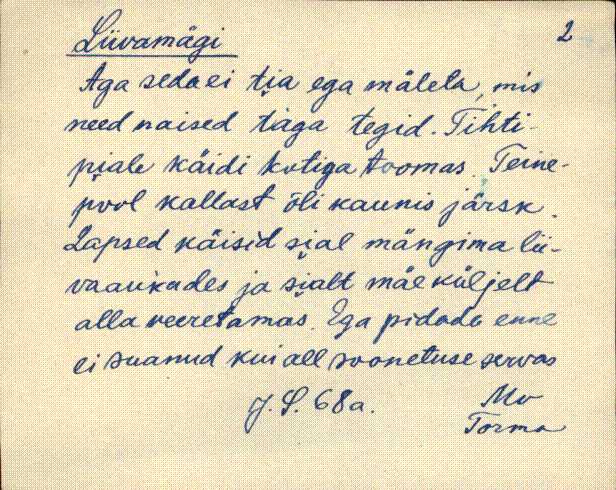 Liivamägi 2
Aga seda ei tia ega mäleta, mis
need naised taga tegid. Tihti-
piale käidi kotiga toomas. Teine-
pool kallast õli kaunis järsk.
Lapsed käisid sial mängima lii-
vaaukades ja sialt mäeküljelt
alla veeretamas. Ega pidada enne
ei suanud kui all soonetuse servas
J. S. 68a. Mv
Torma